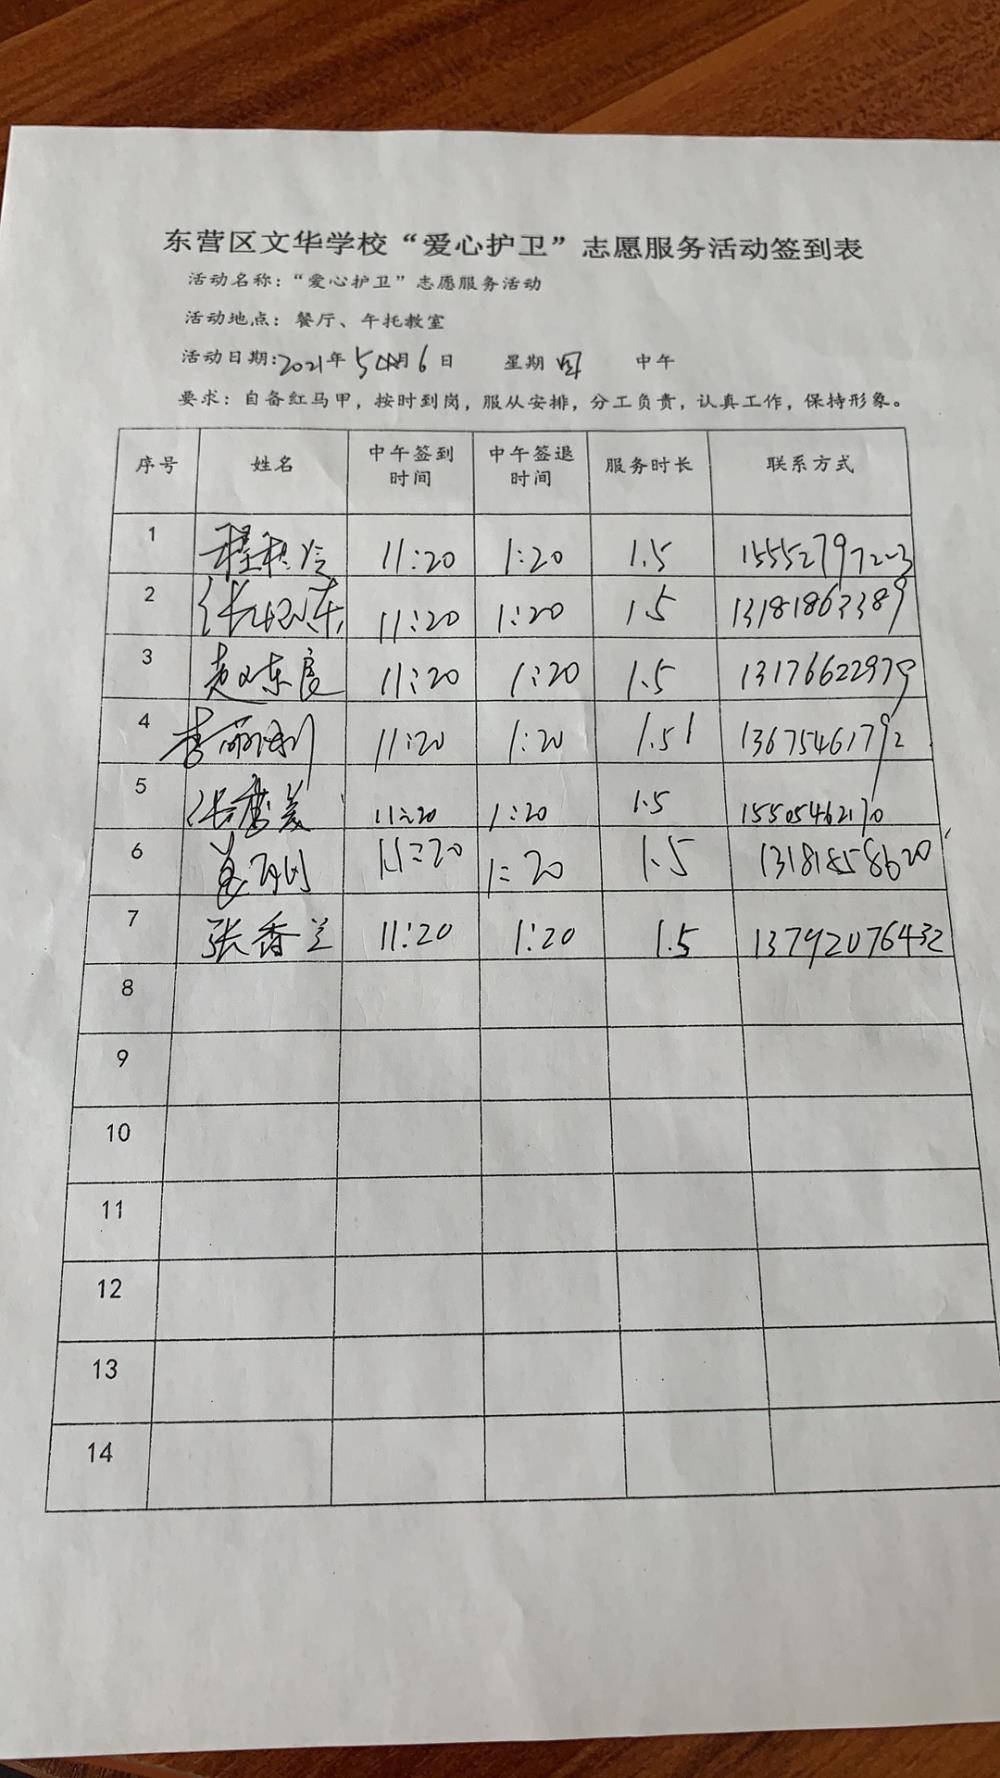 东营区文华学校“爱心护卫”志愿服务活动签到表
活动名称：“爱心护卫”志愿服务活动
活动地点：餐厅、午托教室
活动日期：2021年5月6日 星期四 中午
要求：自备红马甲，按时到岗，服从安排，分工负责，认真工作，保持形象。
序号 姓名 中午签到时间 中午签退时间 服务时长 联系方式
1 11:20 1:20 1.5 15552797203
2 11:20 1:20 1.5 13181863389
3 赵东 11:20 1:20 1.5 13176622979
4 李丽利 11:20 1:20 1.5 13675461792
5 张 美 11:20 1:20 1.5 15505462170
6 11:20 1:20 1.5 13181858620
7 张香兰 11:20 1:20 1.5 13792076432
8
9
10
11
12
13
14